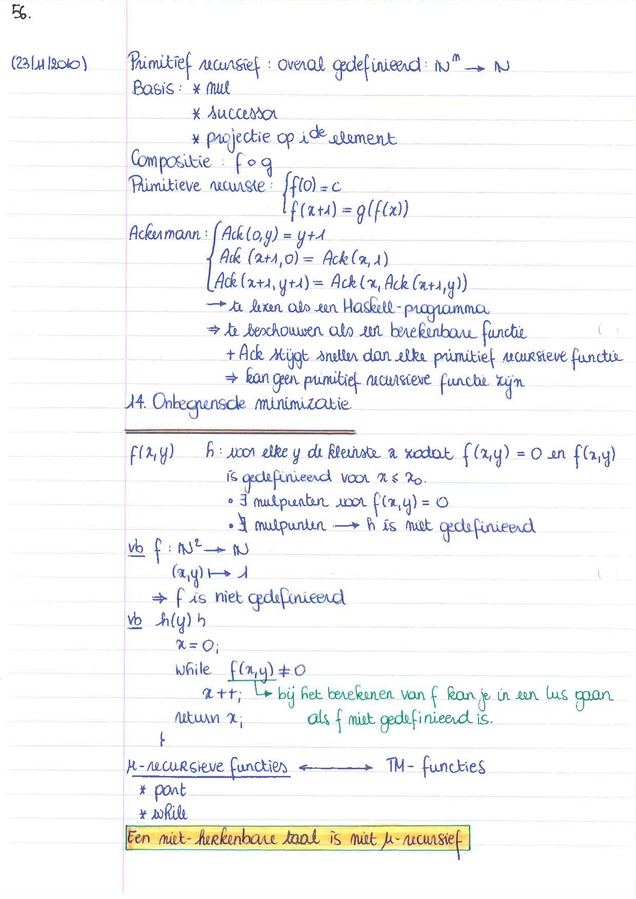 56.
(23/11/2010) Primitief recursief : overal gedefinieerd : ℕᵐ → ℕ
Basis : * nul
* successor
* projectie op iᵈᵉ element
Compositie : f ∘ g
Primitieve recursie : { f(0) = c
f(x+1) = g(f(x))
Ackermann : { Ack(0,y) = y+1
Ack (x+1,0) = Ack(x,1)
Ack(x+1,y+1) = Ack(x, Ack(x+1,y))
→ te lezen als een Haskell-programma
⇒ te beschouwen als een berekenbare functie
+ Ack stijgt sneller dan elke primitief recursieve functie
⇒ kan geen primitief recursieve functie zijn
14. Onbegrensde minimizatie
f(x,y) h : voor elke y de kleinste x zodat f(x,y) = 0 en f(x,y)
is gedefinieerd voor x ≤ x₀.
• ∃ nulpunten voor f(x,y) = 0
• ∄ nulpunten → h is niet gedefinieerd
vb f : ℕ² → ℕ
(x,y) ↦ 1
⇒ f is niet gedefinieerd
vb h(y) {
x = 0;
while f(x,y) ≠ 0
x++; ↳ bij het berekenen van f kan je in een lus gaan
return x; als f niet gedefinieerd is.
}
μ-recursieve functies ⟷ TM-functies
* part
* while
Een niet-herkenbare taal is niet μ-recursief